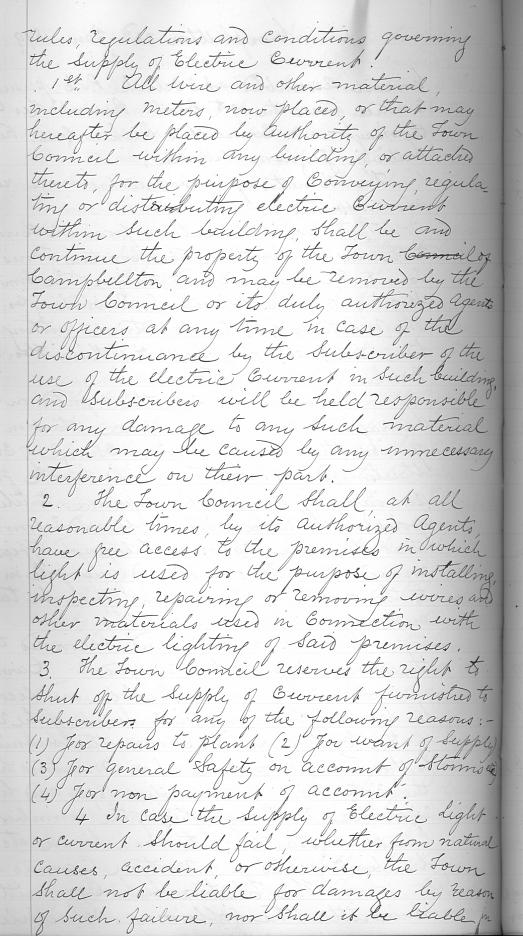 rules, regulations and conditions governing
the Supply of Electric Current.
1st. All wire and other material,
including meters, now placed, or that may
hereafter be placed by authority of the Town
Council within any building, or attached
thereto, for the purpose of Conveying, regula-
ting or distributing electric Current
within Such building, Shall be and
Continue the property of the Town Council of
Campbellton and may be removed by the
Town Council or its duly authorized Agents
or officers at any time in case of the
discontinuance by the Subscriber of the
use of the electric Current in Such building,
and Subscribers will be held responsible
for any damage to any Such material
which may be caused by any unnecessary
interference on their part.
2. The Town Council Shall, at all
reasonable times, by its authorized Agents,
have free access to the premises in which
light is used for the purpose of installing,
inspecting, repairing or removing wires and
other materials used in Connection with
the electric lighting of Said premises.
3. The Town Council reserves the right to
Shut off the Supply of Current furnished to
Subscribers for any of the following reasons:-
(1) For repairs to plant (2) For want of Supply
(3) For general Safety on account of Storms
(4) For non payment of account.
4 In case the Supply of Electric Light
or current Should fail, whether from natural
causes, accident, or otherwise, the Town
Shall not be liable for damages by reason
of Such failure, nor Shall it be liable